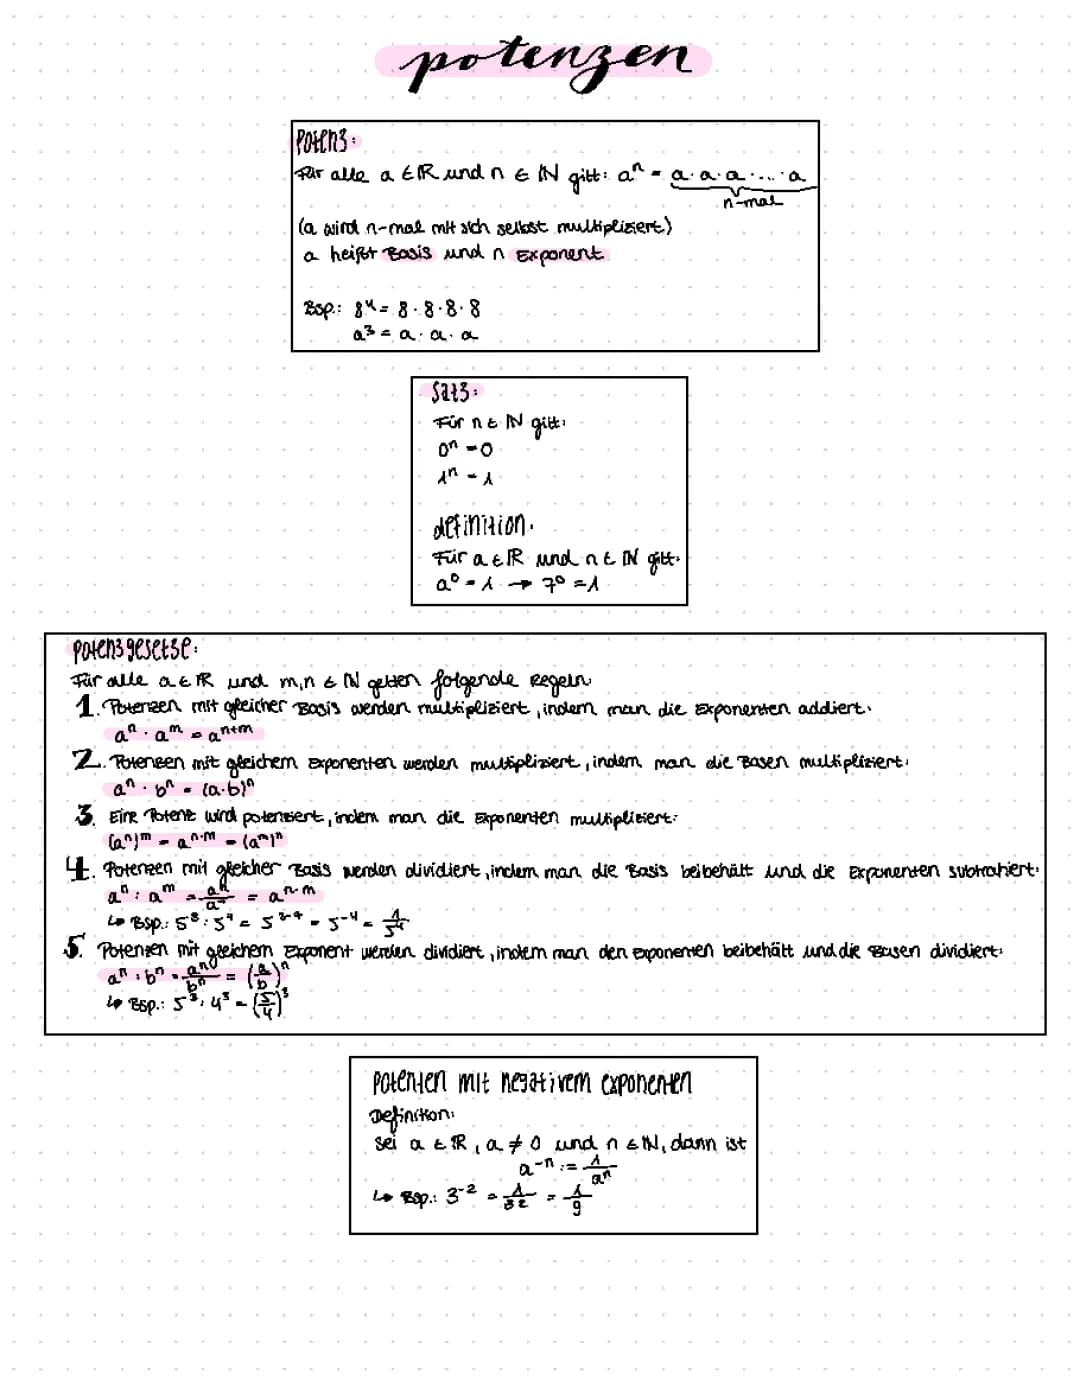 potenzen
Potenz:
Für alle a ∈ ℝ und n ∈ ℕ gilt: aⁿ = a · a · a · ... · a
n-mal
(a wird n-mal mit sich selbst multipliziert)
a heißt Basis und n Exponent
Bsp.: 8⁴ = 8 · 8 · 8 · 8
a³ = a · a · a
Satz:
Für n ∈ ℕ gilt:
0ⁿ = 0
1ⁿ = 1
definition:
Für a ∈ ℝ und n ∈ ℕ gilt:
a⁰ = 1 → 7⁰ = 1
potenzgesetze:
Für alle a ∈ ℝ und m,n ∈ ℕ gelten folgende Regeln:
1. Potenzen mit gleicher Basis werden multipliziert, indem man die Exponenten addiert:
aⁿ · aᵐ = aⁿ⁺ᵐ
2. Potenzen mit gleichem Exponenten werden multipliziert, indem man die Basen multipliziert:
aⁿ · bⁿ = (a·b)ⁿ
3. Eine Potenz wird potenziert, indem man die Exponenten multipliziert:
(aⁿ)ᵐ = aⁿ·ᵐ = (aᵐ)ⁿ
4. Potenzen mit gleicher Basis werden dividiert, indem man die Basis beibehält und die Exponenten subtrahiert:
aⁿ : aᵐ = aⁿ/aᵐ = aⁿ⁻ᵐ
↳ Bsp.: 5⁻⁴ = 1/5⁴
5. Potenzen mit gleichem Exponent werden dividiert, indem man den Exponenten beibehält und die Basen dividiert:
aⁿ : bⁿ = aⁿ/bⁿ = (a/b)ⁿ
↳ Bsp.: 5³ : 4³ = (5/4)³
potenzen mit negativem exponenten
Definition:
Sei a ∈ ℝ, a ≠ 0 und n ∈ ℕ, dann ist
a⁻ⁿ := 1/aⁿ
↳ Bsp.: 3⁻² = 1/3² = 1/9